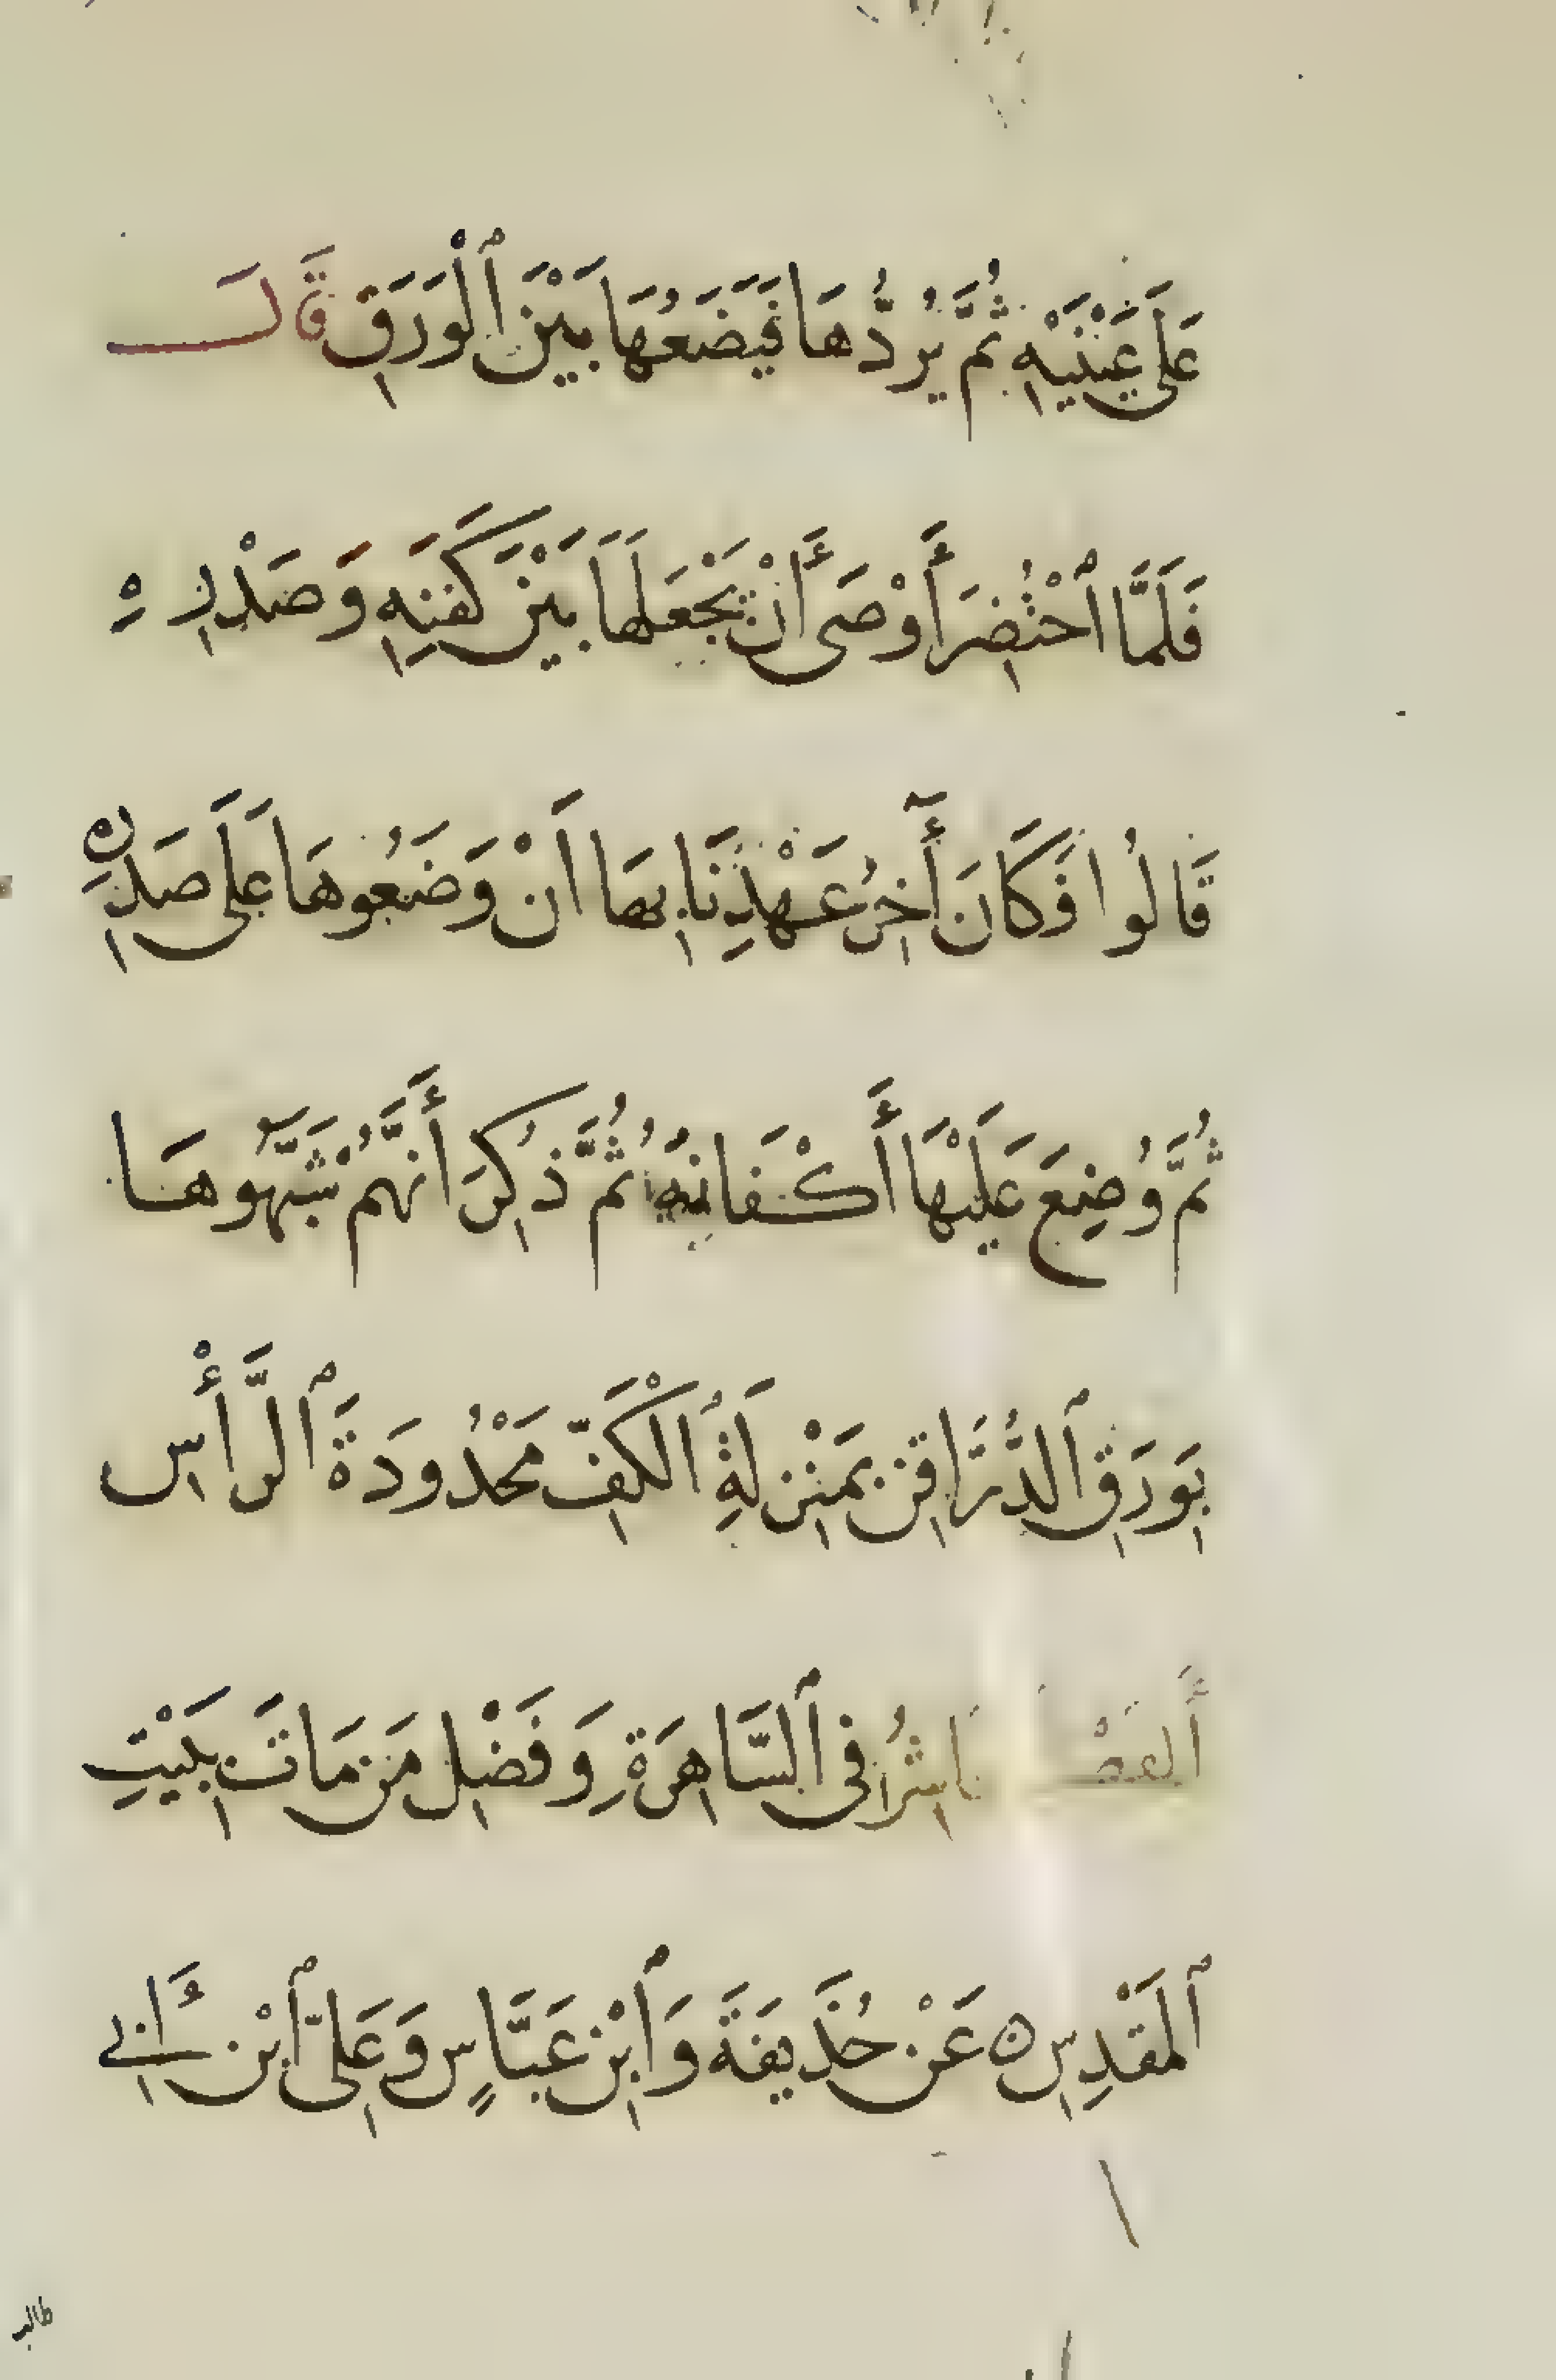 عَلَى عَيْنَيْهِ ثُمَّ يَرُدُّهَا فَيَضَعُهَا بَيْنَ ٱلْوَرَقِ قَالَ
فَلَمَّا ٱحْتُضِرَ أَوْصَى أَنْ تَجْعَلَهَا بَيْنَ كَفَنِهِ وَصَدْرِهِ
قَالُوا فَكَانَ آخِرُ عَهْدِنَا بِهَا أَنْ وَضَعُوهَا عَلَى صَدْرِهِ
ثُمَّ وُضِعَ عَلَيْهَا أَكْفَانُهُ ثُمَّ ذُكِرَ أَنَّهُمْ شَبَّهُوهَا
بِوَرَقِ ٱلدُّرَّاقِنِ بِمَنْزِلَةِ ٱلْكَفِّ مَحْدُودَةَ ٱلرَّأْسِ
فِى ٱلسَّاهِرَةِ وَفَضْلِ مَنْ مَاتَ بِبَيْتِ
ٱلمَقْدِسِ عَنْ حُذَيفَةَ وَٱبْنِ عَبَّاسٍ وَعَلِىِّ ٱبْنِ أَبِي
طالب